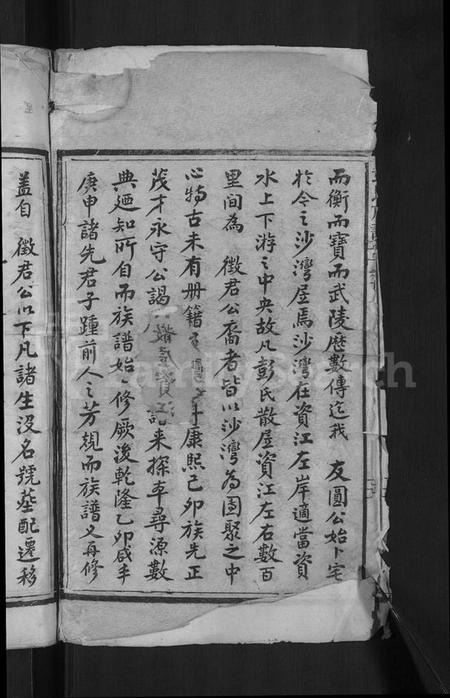 而衡而寶而武陵歷數傳迄我　友圓公始卜宅
於今之沙灣居焉沙灣在資江左岸適當資
水上下游之中央故凡彭氏散居資江左右數百
里間為　徵君公裔者皆以沙灣為團聚之中
心特古未有册籍 康熙己卯族先正
茂才永守公謁 譜來探本尋源數
典廼知所自而族譜始修厥後乾隆乙卯咸丰
庚申諸先君子踵前人之芳規而族譜又再修
蓋自　徵君公以下凡諸生沒名號葬配遷移
FamilySearch